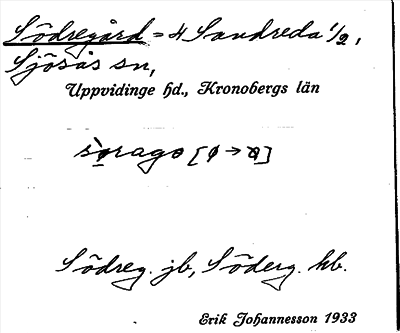 Södregård = 4 Sandreda 1/2,
Sjösås sn,
Uppvidinge hd., Kronobergs län
Södreg. jb, Söderg. kb.
Erik Johannesson 1933